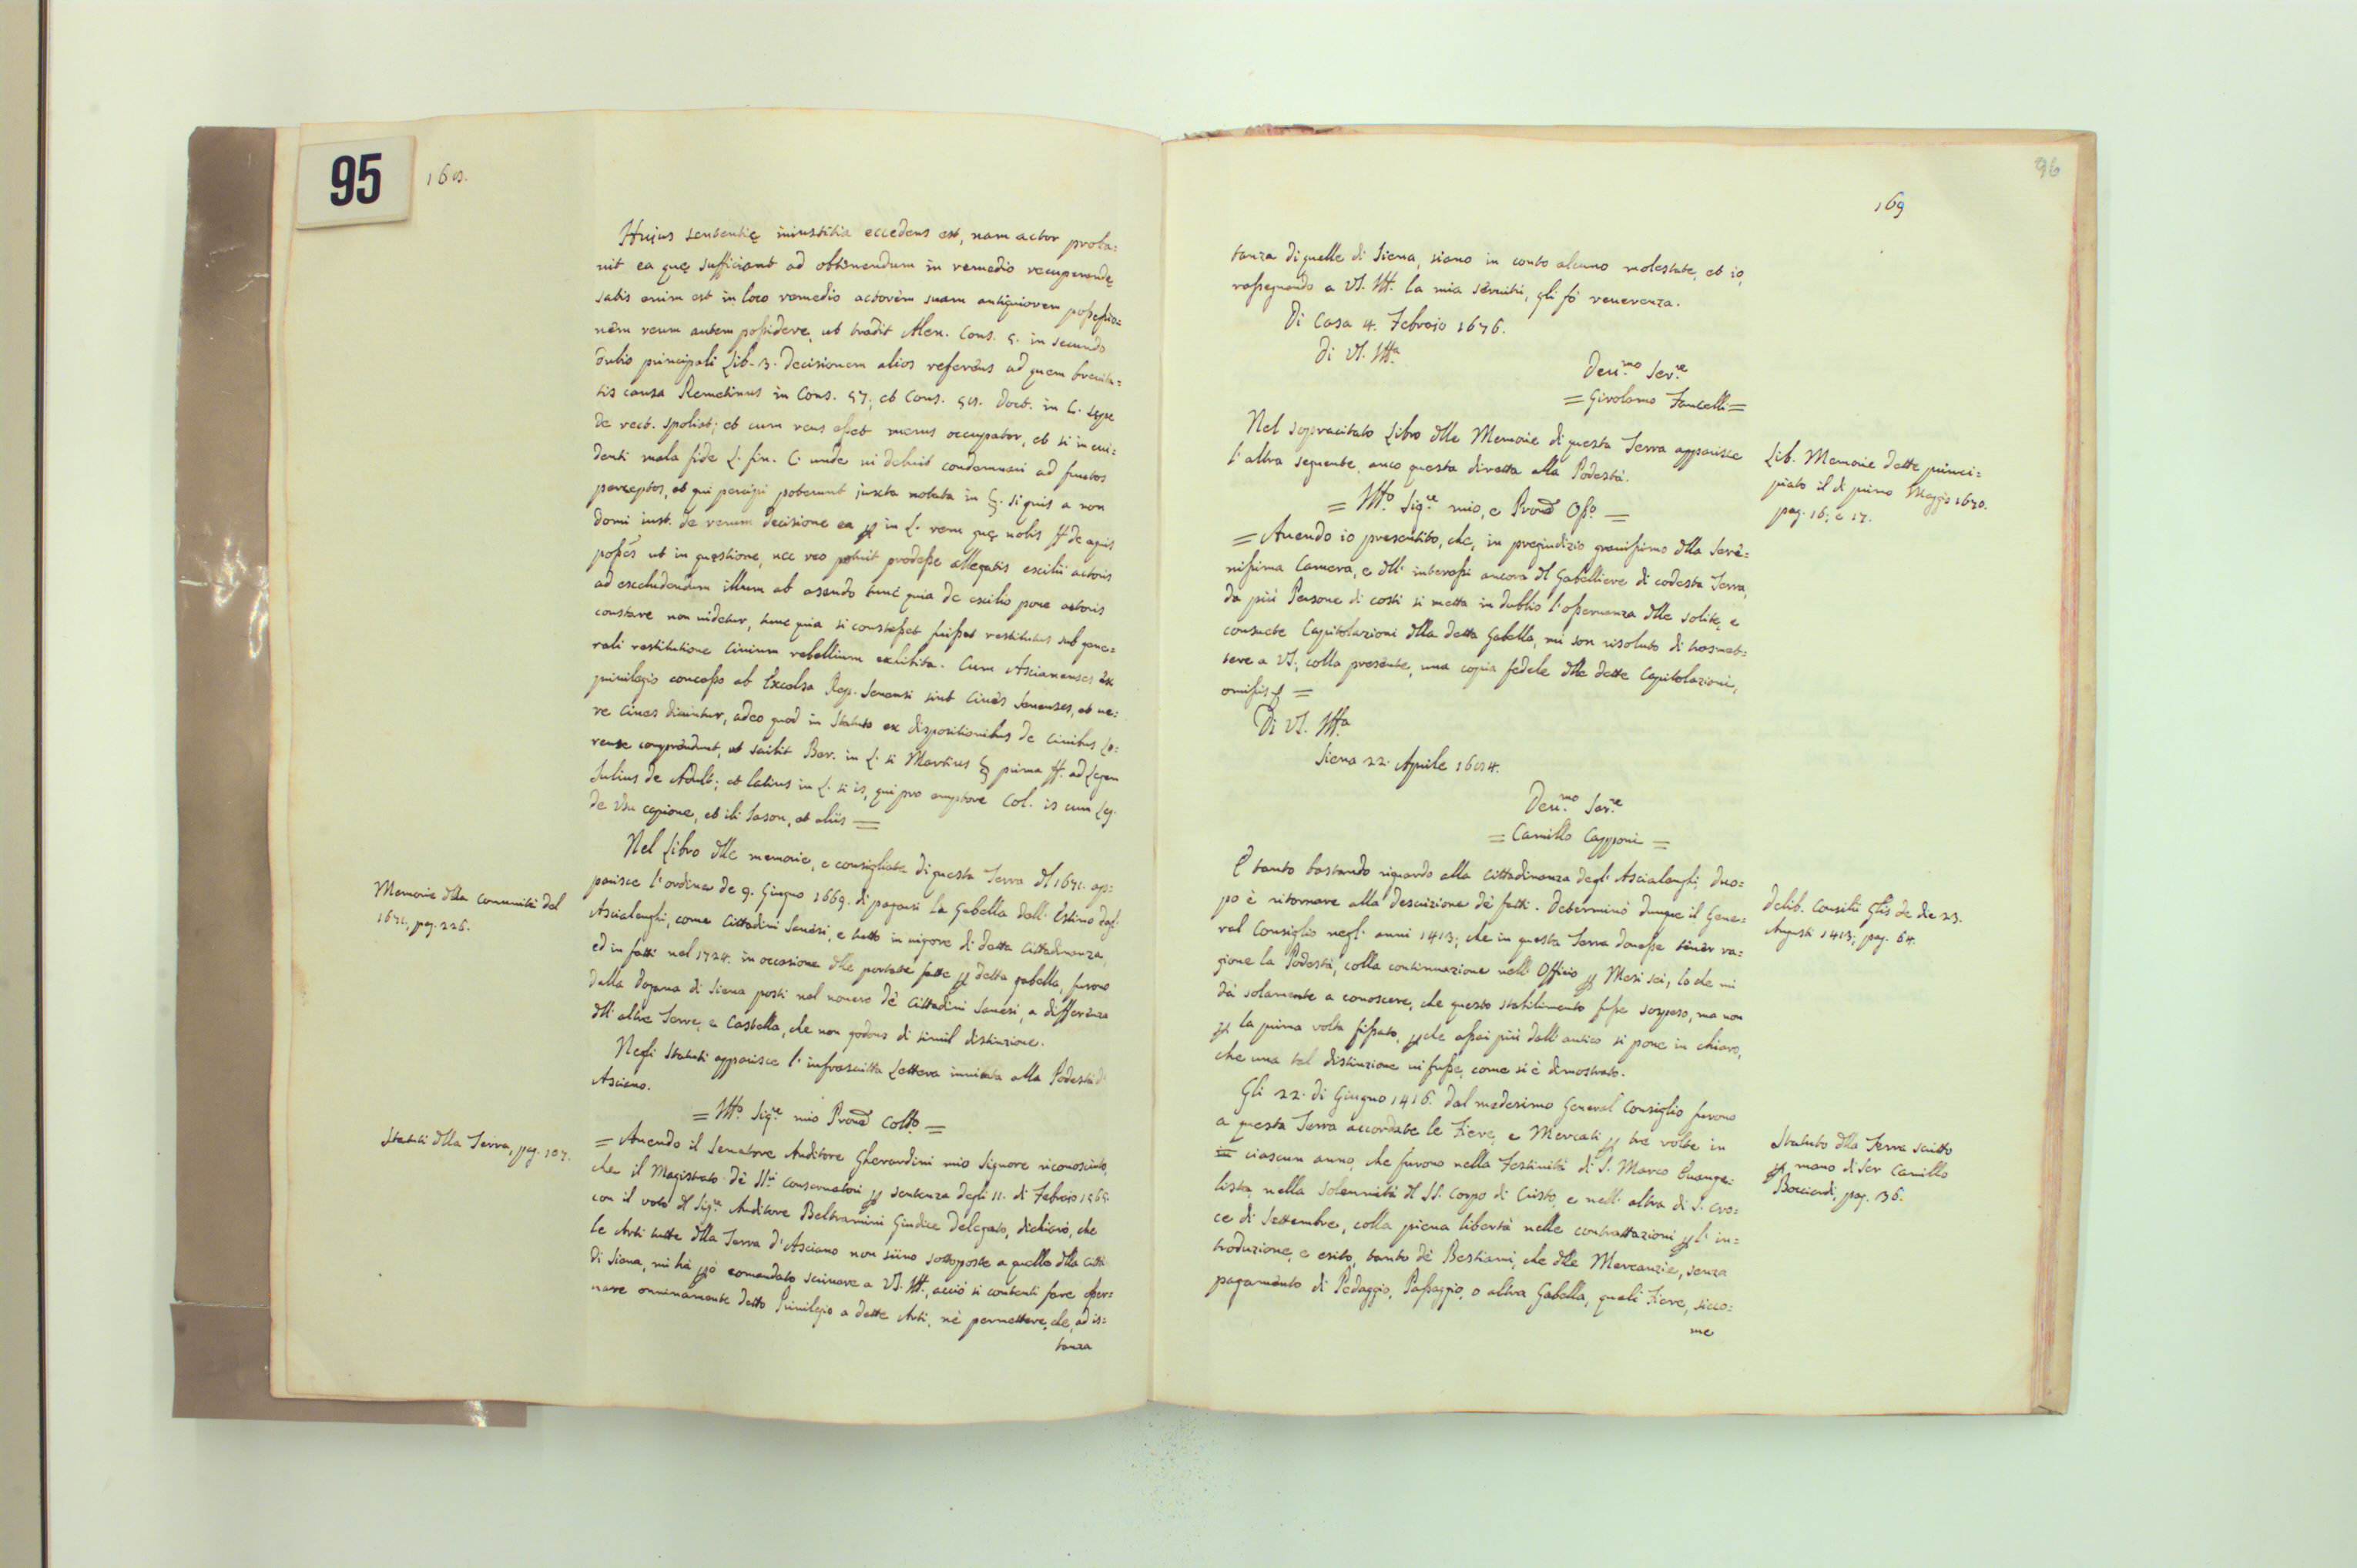 95
168.
Hujus sententię iniustitia eccedens est, nam actor proba=
uit ea quę sufficiant ad obtinendum in remedio recuperandę
satis enim est in loco remedio actorem suam antiquiorem possessio=
nem reum autem possidere, ut tradit Alex. Cons. 5. in secundo
dubio principali Lib. 3. decisionem alios referens ad quem breuita=
tis causa Remetimus in Cons. 57; et Cons. 58. doct. in C. sępe
de rest. spoliat; et cum reus esset merus occupator, et si in eui=
denti mala fide L. fin. C. unde ui debuit condemnari ad fructos
perceptos, et qui percipi poterunt juxta notata in §. si quis a non
domi inst. de rerum decisione ea per in L. rem quę nobis ff de aquis
posses ut in quęstione, nec reo potuit prodesse allegatis exilii actoris
ad excludendum illum ab agendo tunc quia de exilio pone actoris
constare non uidetur, tunc quia si constasset fuisset restitutus sub gene=
rali restitutione Ciuium rebellium exhibita. Cum Ascianenses ex
priuilegio concesso ab Excelsa Rep. Senensi sint Ciues Senenses, et ue=
re Ciues dicuntur, adeo quod in Statuto ex dispositionibus de Ciuibus lo=
rense comprendunt, ut scribit Bar. in L. si Maritus § prima ff. ad Legem
Julius de Adult; et latius in L. si is, qui pro emptore Col. is cum seq.
de Usu capione, et ibi Jason, et aliis =
Nel Libro dlle memorie, e consigliate di questa Terra dl 1671. ap=
parisce l'ordine de 9. Giugno 1669. di pagarsi la Gabella dall' Estimo dagl'
Ascialenghi, come Cittadini Sanesi, e tutto in uigore di detta Cittadinanza,
ed in fatti nel 1724. in occasione dlle portate fatte per detta gabella, furono
dalla Dogana di Siena posti nel nouero de' Cittadini Sanesi, a differenza
dll' altre Terre, e Castella, che non godono di simil distinzione.
Memorie dlla Communità del
1671, pag. 226.
Negli Statuti apparisce l' infrascritta Lettera inuiata alla Podestà d'
Asciano.
= Ill.o Sig.re mio Prond Coll.o =
Statuti dlla Terra, pag. 107.
= Auendo il Senatore Auditore Gherardini mio Signore riconosciuto,
che il Magistrato de' SS.ri Conseruatori per sentenza degli 11. di Febraio 1565.
con il voto dl Sig.re Auditore Beltramini Giudice delegato, dichiarò, che
le Arti tutte dlla Terra d'Asciano non siino sottoposte a quelle dlla Città
di Siena, mi hà però comandato scriuere a VS. Ill., acciò si contenti fare osser=
uare onninamente detto Priuilegio a dette Arti, nè permettere, che, ad is=
tanza
96
169
tanza di quelle di Siena, siano in conto alcuno molestate, et io,
rassegnando a VS. Ill. la mia seruitù, gli fò reuerenza.
Di Casa 4. Febraio 1676.
Di VS. Ill.a
Deu.mo Ser.re
= Girolamo Fancelli =
Nel sopracitato Libro dlle Memorie di questa Terra apparisce
l'altra seguente, anco questa diretta alla Podestà.
Lib. Memorie dette princi=
piato il dì primo Maggio 1670.
pag. 16; e 17.
= Ill.o Sig.re mio, e Prond Oss.o =
= Auendo io presentito, che, in pregiudizio grauissimo dlla Sere=
nissima Camera, e dll' interessi ancora dl Gabelliere di codesta Terra,
da più Persone di costì si metta in dubbio l'osseruanza dlle solite, e
consuete Capitolazioni dlla detta Gabella, mi son risoluto di trasmet=
tere a VS., colla presente, una copia fedele dlle dette Capitolazioni,
omissis =
Di VS. Ill.a
Siena 22. Aprile 1684.
Deu.mo Ser.re
= Camillo Capponi =
E tanto bastando riguardo alla Cittadinanza degl' Ascialenghi, duo=
po è ritornare alla descrizione de' fatti. Determinò dunque il Gene=
ral Consiglio negl' anni 1413; che in questa Terra douesse tener ra=
gione la Podestà, colla continuazione nell' Officio per Mesi sei, lo che mi
dà solamente a conoscere, che questo stabilimento fusse sospeso, ma non
per la prima volta fissato, perche assai più dall' antico si pone in chiaro,
che una tal distinzione ui fusse, come si è dimostrato.
Delib. Consilii Glis de die 23.
Augusti 1413; pag. 64.
Gli 22. di Giugno 1416. dal medesimo General Consiglio furono
a questa Terra accordate le Fiere, e Mercati per tre volte in
in ciascun anno, che furono nella Festiuità di S. Marco Euange=
lista, nella Solennità dl SS. Corpo di Cristo, e nell' altra di S. Cro=
ce di Settembre, colla piena libertà nelle contrattazioni per l' in=
troduzione, e esito, tanto de' Bestiami, che dlle Mercanzie, senza
pagamento di Pedaggio, Passaggio, o altra Gabella, quali Fiere, sicco=
me
Statuto dlla Terra scritto
per mano di Ser Camillo
Bocciardi, pag. 136.